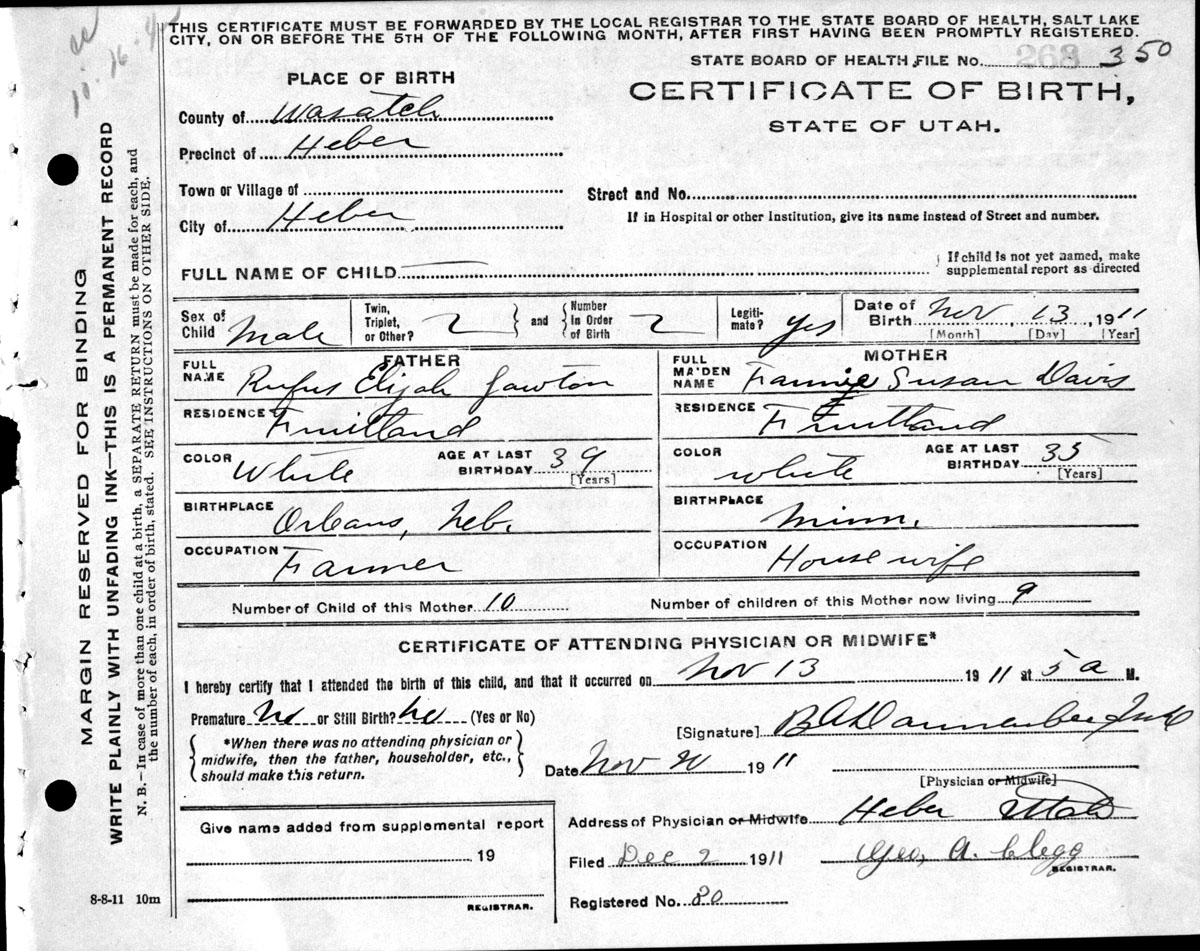 THIS CERTIFICATE MUST BE FORWARDED BY THE LOCAL REGISTRAR TO THE STATE BOARD OF HEALTH, SALT LAKE
CITY, ON OR BEFORE THE 5TH OF THE FOLLOWING MONTH, AFTER FIRST HAVING BEEN PROMPTLY REGISTERED.
STATE BOARD OF HEALTH FILE No. 350
CERTIFICATE OF BIRTH,
STATE OF UTAH.
PLACE OF BIRTH
County of Wasatch
Precinct of Heber
Town or Village of
City of Heber
Street and No.
If in Hospital or other Institution, give its name instead of Street and number.
FULL NAME OF CHILD
If child is not yet named, make
supplemental report as directed
Sex of Child Male
Twin, Triplet, or Other? 2 and Number In Order of Birth 2
Legiti-mate? yes
Date of Birth Nov, 13, 1911
[Month] [Day] [Year]
FATHER
FULL NAME Rufus Elijah
RESIDENCE Fruitland
COLOR White AGE AT LAST BIRTHDAY 39 [Years]
BIRTHPLACE Orleans, Neb.
OCCUPATION Farmer
MOTHER
FULL MAIDEN NAME Fannie Susan Davis
RESIDENCE Fruitland
COLOR white AGE AT LAST BIRTHDAY 35 [Years]
BIRTHPLACE Minn.
OCCUPATION House wife
Number of Child of this Mother 10 Number of children of this Mother now living 9
CERTIFICATE OF ATTENDING PHYSICIAN OR MIDWIFE*
I hereby certify that I attended the birth of this child, and that it occurred on Nov 13 1911 at 5 a M.
Premature No or Still Birth? No (Yes or No)
*When there was no attending physician or
midwife, then the father, householder, etc.,
should make this return.
[Signature]
Date Nov 20 1911
[Physician or Midwife]
Address of Physician or Midwife Heber Utah
Filed Dec 2 1911 Geo. A. Clegg
REGISTRAR.
Registered No. 80
Give name added from supplemental report
19
REGISTRAR.
8-8-11 10m
MARGIN RESERVED FOR BINDING
WRITE PLAINLY WITH UNFADING INK—THIS IS A PERMANENT RECORD
N. B.—In case of more than one child at a birth, a SEPARATE RETURN must be made for each, and
the number of each, in order of birth, stated. SEE INSTRUCTIONS ON OTHER SIDE.